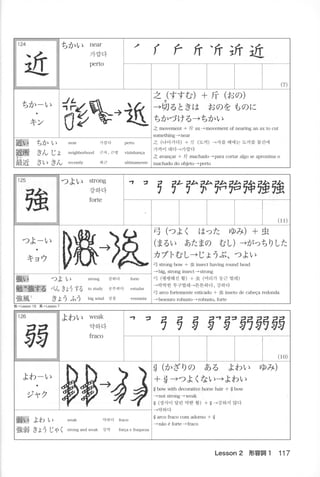 124
近
ちかい
near
가깝다
perto
(7)
ちか－い
・
キン
近
辶 (すすむ) + 斤 (おの)
→切るときは おのを ものに
ちかづける→ちかい
辶 movement + 斤 ax→movement of nearing an ax to cut
something→near
辶 avançar + 斤 machado→para cortar algo se aproxima o
machado do objeto→perto
近い ちかい near 가깝다 perto
近所 きんじょ neighborhood 근처, 근방 vizinhança
最近 さいきん recently 최근 ultimamente
125
強
つよい
strong
강하다
forte
(11)
つよ－い
・
キョウ
強
弓 (つよく はった ゆみ) + 虫
(まるい あたまの むし)→がっちりした
カブトむし→じょうぶ、つよい
弓 strong bow + 虫 insect having round head
→big, strong insect→strong
弓 arco fortemente esticado + 虫 inseto de cabeça redonda
→besouro robusto→robusto, forte
強い つよい strong 강하다 forte
勉強する べんきょうする to study 공부하다 estudar
強風 きょうふう big wind 강풍 ventania
126
弱
よわい
weak
약하다
fraco
(10)
よわ－い
・
ジャク
弱
弓 (かざりの ある よわい ゆみ)
+ 弓→つよくない→よわい
弓 bow with decorative horse hair + 弓 bow
→not strong→weak
→약하다
弓 arco fraco com adorno + 弓
→não é forte→fraco
弱い よわい weak 약하다 fraco
強弱 きょうじゃく strong and weak 강약 força e fraqueza
Lesson 2 形容詞 1 117